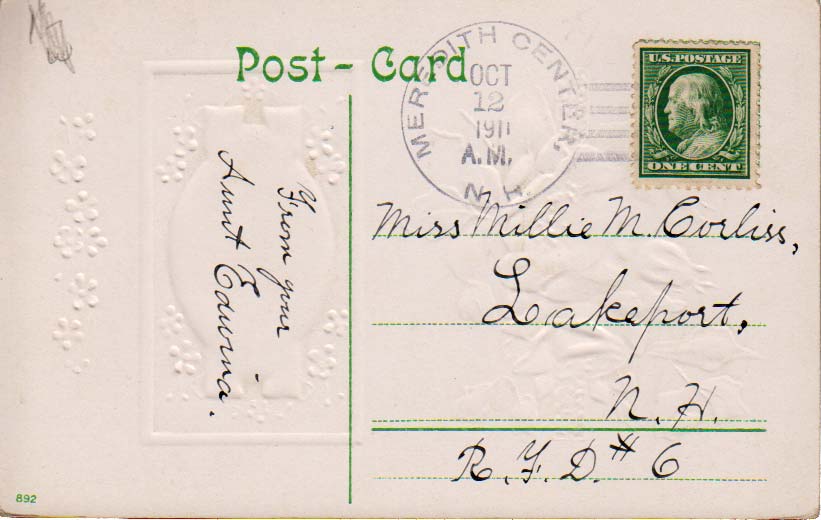 Post-Card
MEREDITH CENTER,
OCT
12
1911
A.M.
N.H.
U.S. POSTAGE
ONE CENT
From your
Aunt Edwina.
Miss Millie M. Corliss,
Lakeport,
N. H.
R. F. D. # 6
892